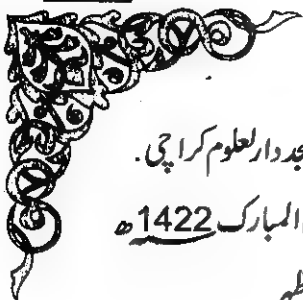 جد دارلعلوم کراچی۔
المبارک 1422ھ
ظہر